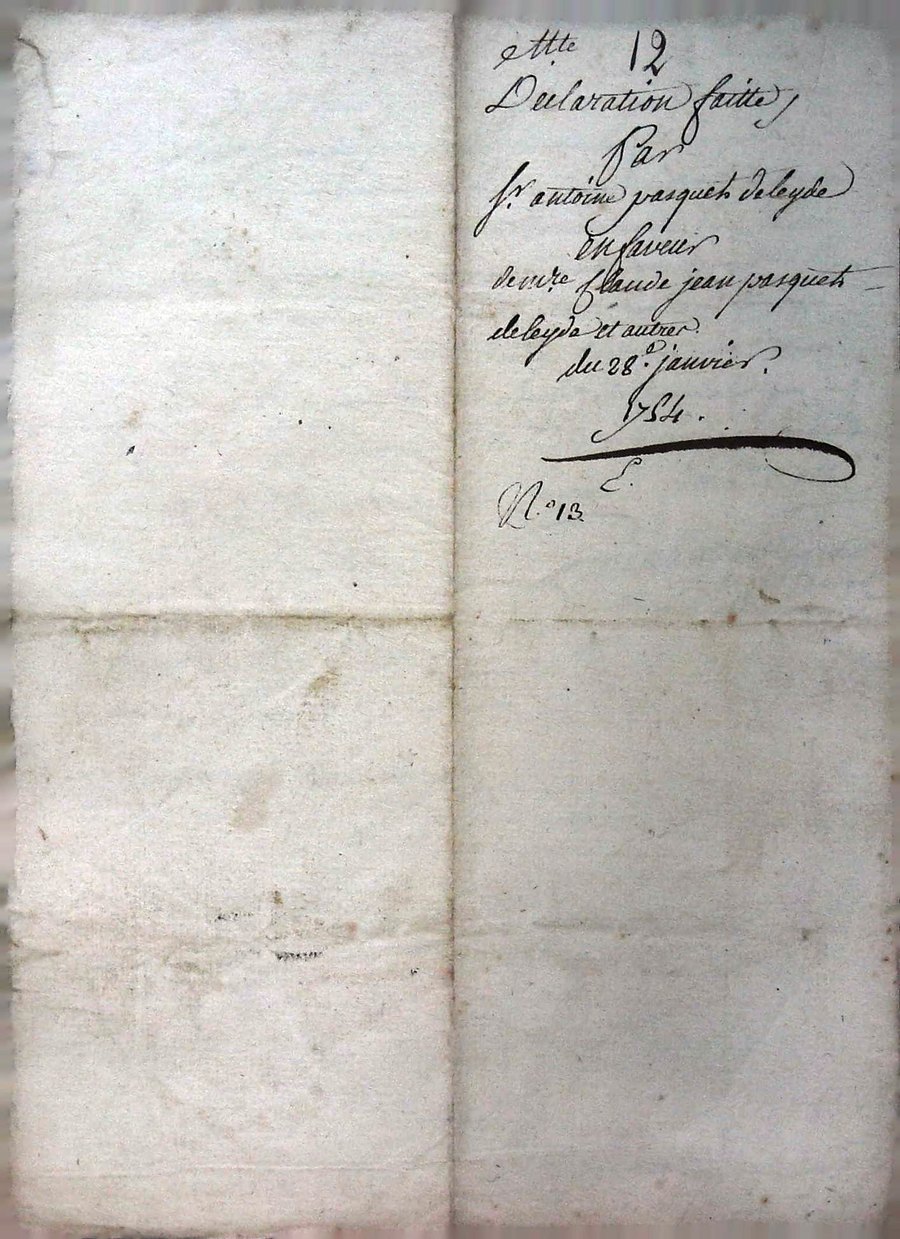 12
Declaration faitte
Par
Sr. antoine pasquets deleyde
en faveur
de mre Claude jean pasquets
deleyde et autres.
du 28e. janvier.
1754.
E.
N.o 13.